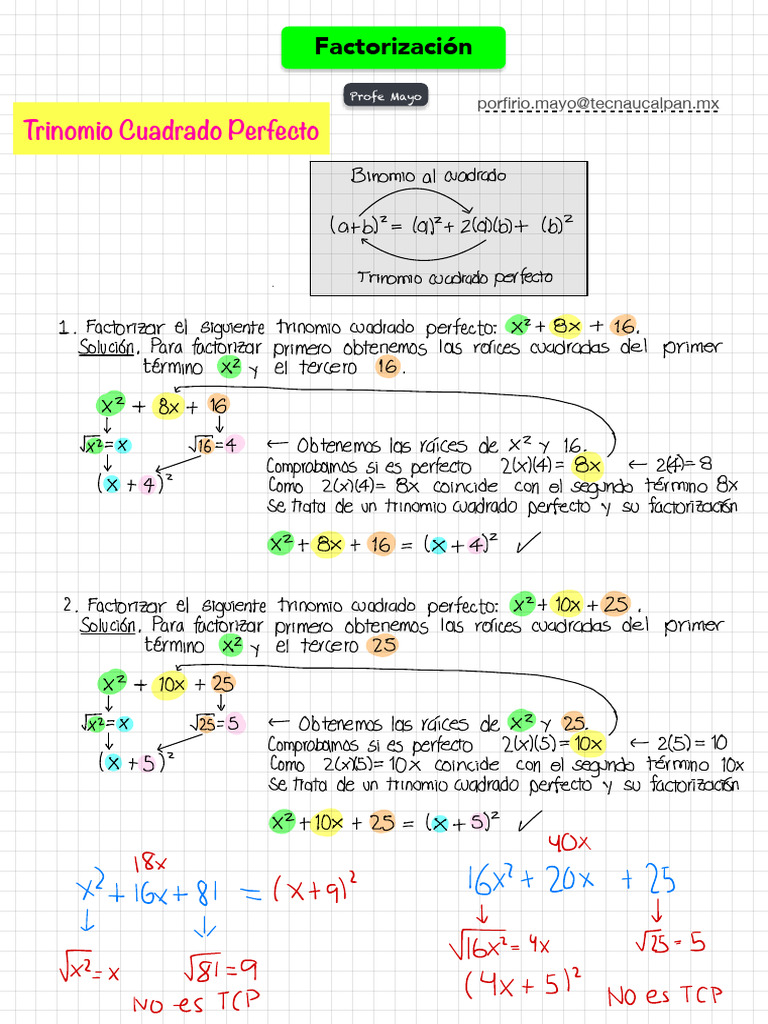 Factorización
Profe Mayo
porfirio.mayo@tecnaucalpan.mx
Trinomio Cuadrado Perfecto
Binomio al cuadrado
(a+b)² = (a)² + 2(a)(b) + (b)²
Trinomio cuadrado perfecto
1. Factorizar el siguiente trinomio cuadrado perfecto: x² + 8x + 16.
Solución. Para factorizar primero obtenemos las raíces cuadradas del primer
término x² y el tercero 16.
x² + 8x + 16
√x² = x √16 = 4 ← Obtenemos las raíces de x² y 16.
Comprobamos si es perfecto 2(x)(4) = 8x ← 2(4) = 8
(x + 4)² Como 2(x)(4) = 8x coincide con el segundo término 8x
se trata de un trinomio cuadrado perfecto y su factorización
x² + 8x + 16 = (x + 4)² ✓
2. Factorizar el siguiente trinomio cuadrado perfecto: x² + 10x + 25.
Solución. Para factorizar primero obtenemos las raíces cuadradas del primer
término x² y el tercero 25
x² + 10x + 25
√x² = x √25 = 5 ← Obtenemos las raíces de x² y 25.
Comprobamos si es perfecto 2(x)(5) = 10x ← 2(5) = 10
(x + 5)² Como 2(x)(5) = 10x coincide con el segundo término 10x
se trata de un trinomio cuadrado perfecto y su factorización
x² + 10x + 25 = (x + 5)² ✓
18x
x² + 16x + 81 = (x + 9)²
√x² = x √81 = 9
No es TCP
40x
16x² + 20x + 25
√16x² = 4x √25 = 5
(4x + 5)²
No es TCP